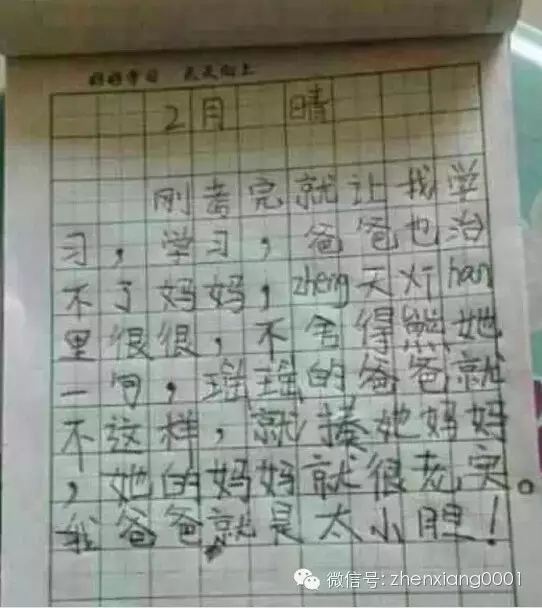 好好学习 天天向上
2月 晴
刚考完就让我学
习，学习，爸爸也治
不了妈妈，zheng天对han
里很很，不舍得熊她
一句，瑶瑶的爸爸就
不这样，就揍她妈妈
，她的妈妈就很老实。
我爸爸就是太小胆！
微信号: zhenxiang0001